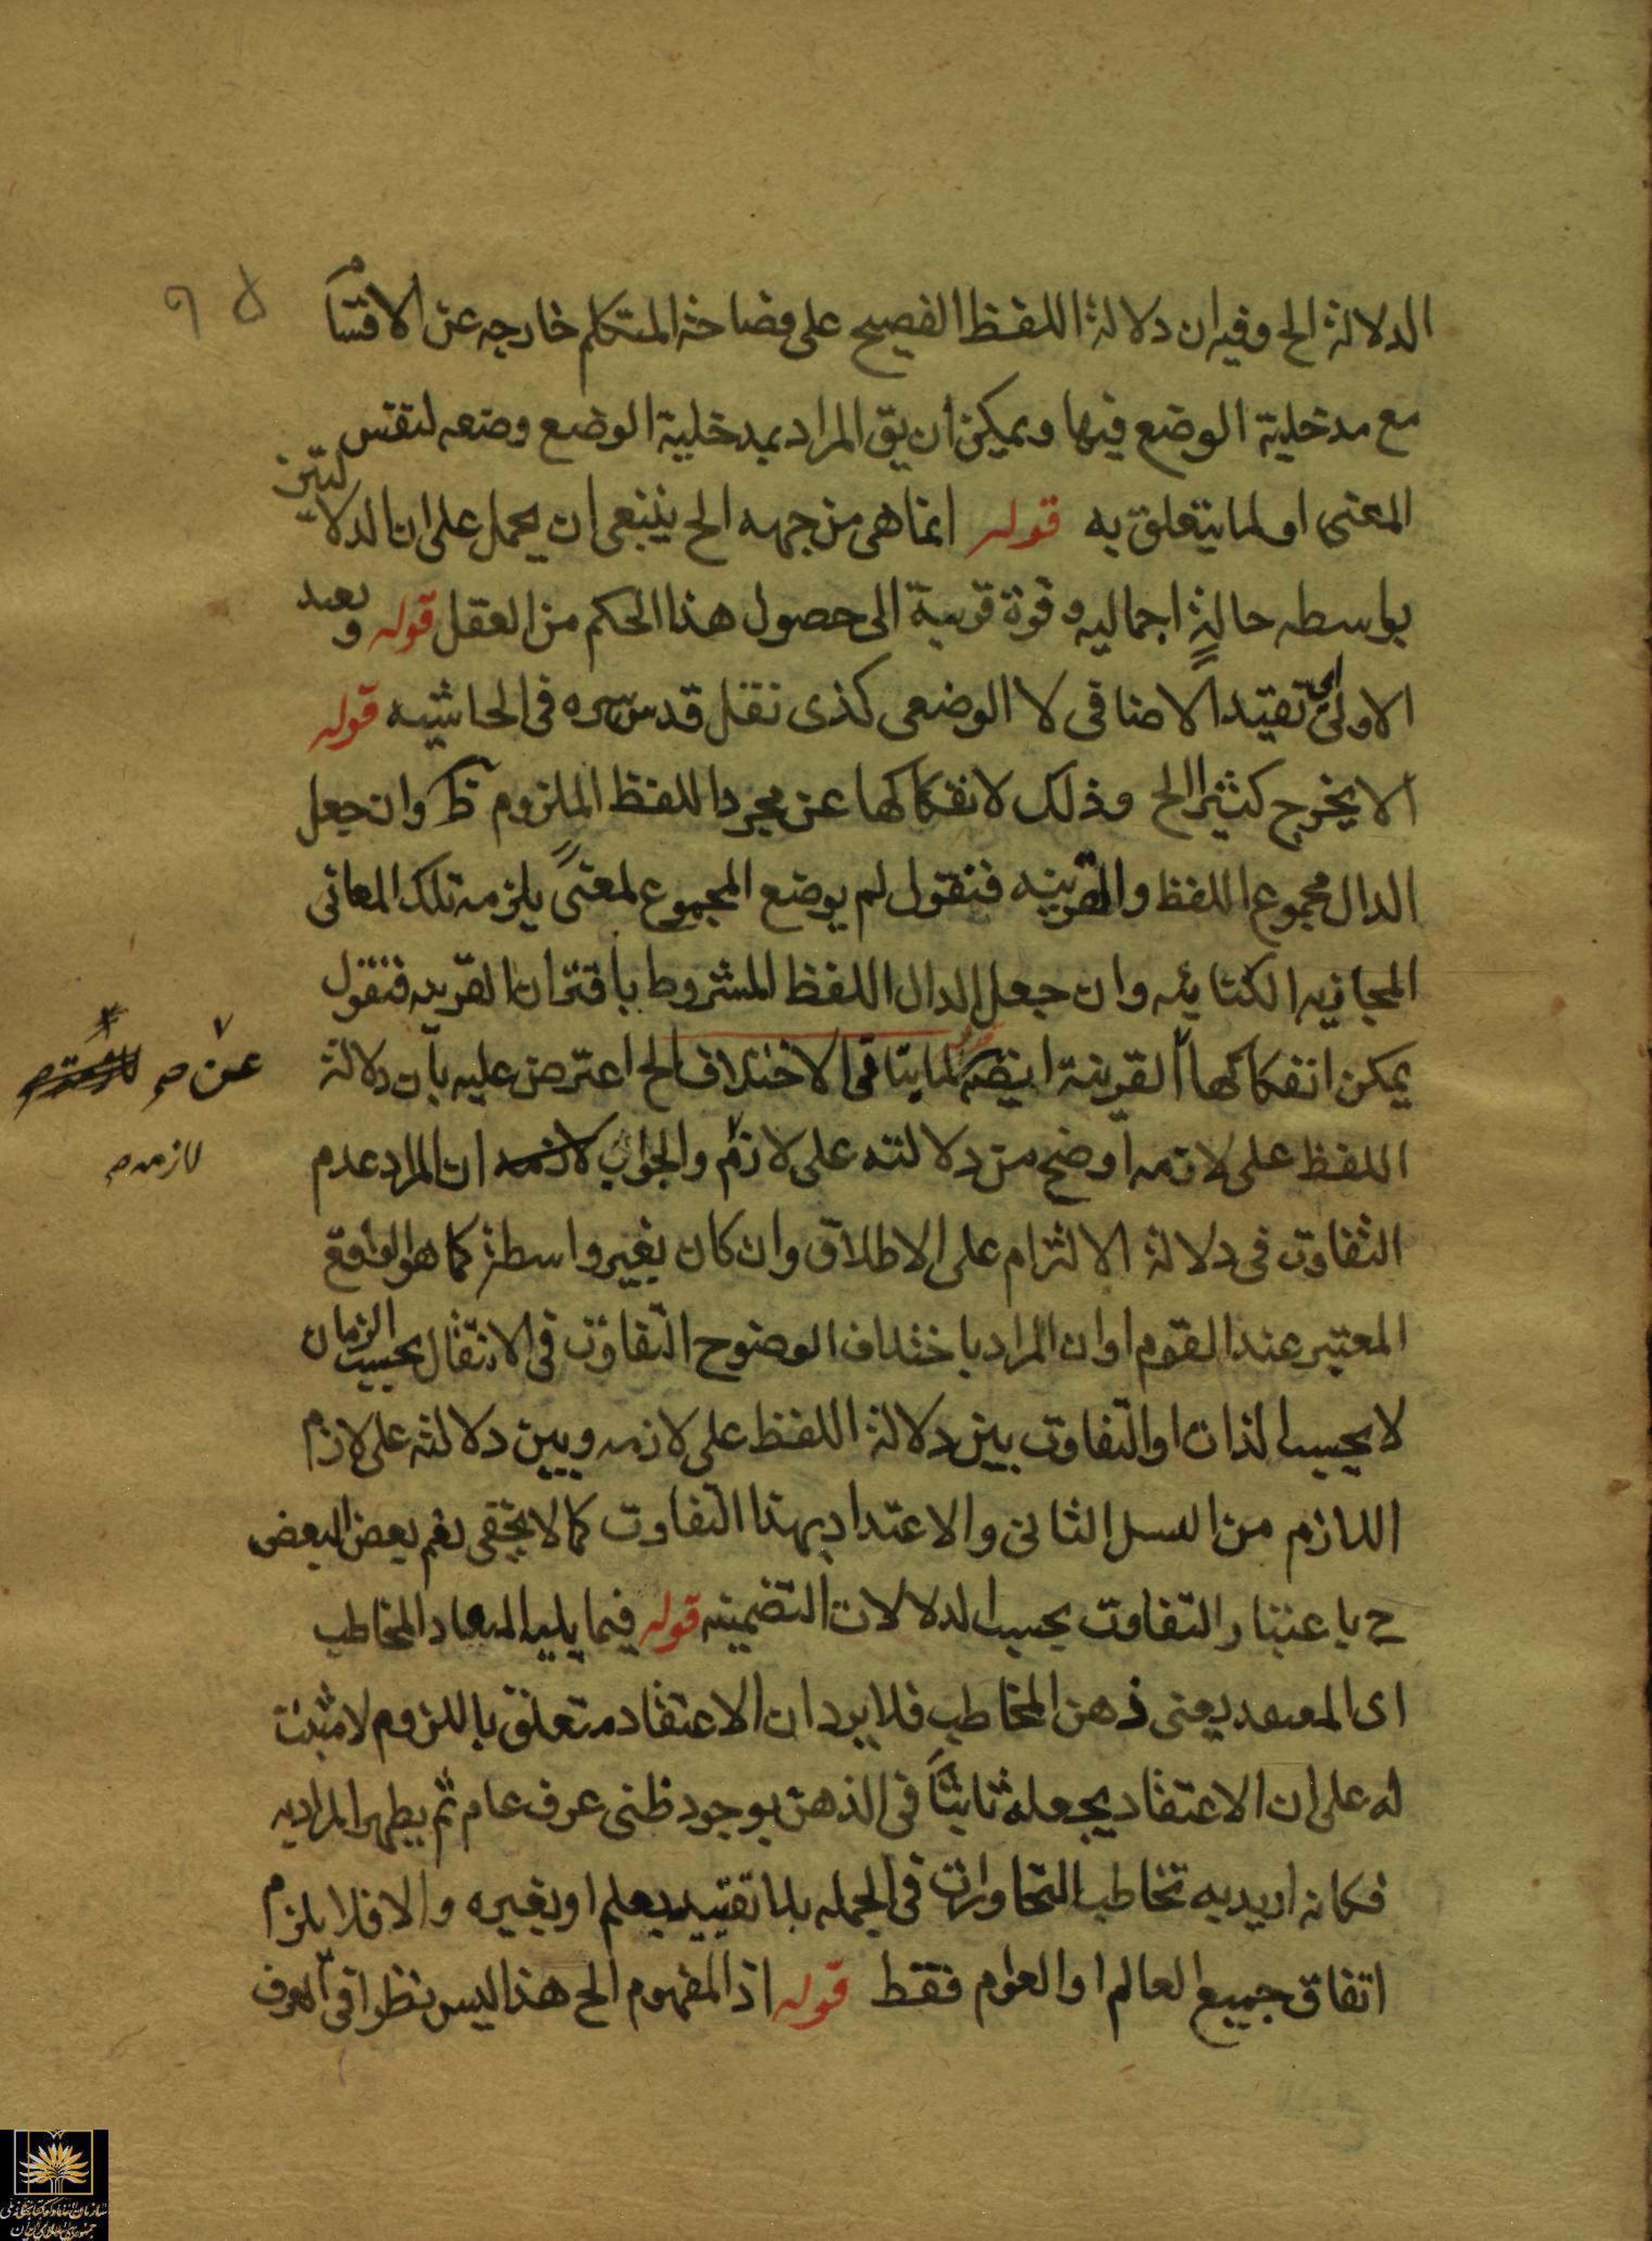 الدلالة الخ وفيه ان دلالة اللفظ الفصيح على فصاحة المتكلم خارجه عن الاقسام
مع مدخلية الوضع فيها ويمكن ان يق المراد بمدخلية الوضع وضعه لنفس
المعنى او لما يتعلق به قوله انما هى من جهه الخ ينبغى ان يحمل على ان الدلالتين
بواسطه حالةٍ اجماليه وقوة قريبة الى حصول هذا الحكم من العقل قوله وبعيد
الاولى اى تقيّد الاضافى لا الوضعى كذى نقل قدس سره فى الحاشيه قوله
الا يخرج كثيرا الخ وذلك لانفكاكها عن مجرد اللفظ الملزوم ظ وان جعل
الدال مجموع اللفظ والقرينه فنقول لم يوضع المجموع لمعنىً يلزمه تلك المعانى
المجازيه الكنائيه وان جعل الدال اللفظ المشروط باقتران القرينه فنقول
يمكن انفكاكها القرينة ايضا قوله لما يتأتى الاختلاف الخ اعترض عليه بان دلالة
عن م
اللفظ على لازمه اوضح من دلالته على لازم والجواب ان المراد عدم
لازمه م
التفاوت فى دلالة الالتزام على الاطلاق وان كان بغير واسطة كما هو الواقع
المعتبر عند القوم او ان المراد باختلاف الوضوح التفاوت فى الانتقال بحسب الزمان
لا بحسب الذات او التفاوت بين دلالة اللفظ على لازمه وبين دلالته على لازم
اللازم من السبل الثانى والاعتداد بهذا التفاوت كما لا يخفى نعم بعض البعض
ح باعتبار التفاوت بحسب الدلالات التضمنيه قوله فيما يليه المخاطب
اى المعتقد يعنى ذهن المخاطب فلا يرد ان الاعتقاد متعلق باللزوم لا مثبت
له على ان الاعتقاد يجعله ثابتاً فى الذهن بوجود ظنى عرف عام ثم يظهر المراد به
فكانه اريد به تخاطب التحاورات فى الجمله بلا تقييد بعلم او بغيره والا فلا يلزم
اتفاق جميع العالم او العوام فقط قوله اذ المفهوم الخ هذا ليس نظرا فى العرف